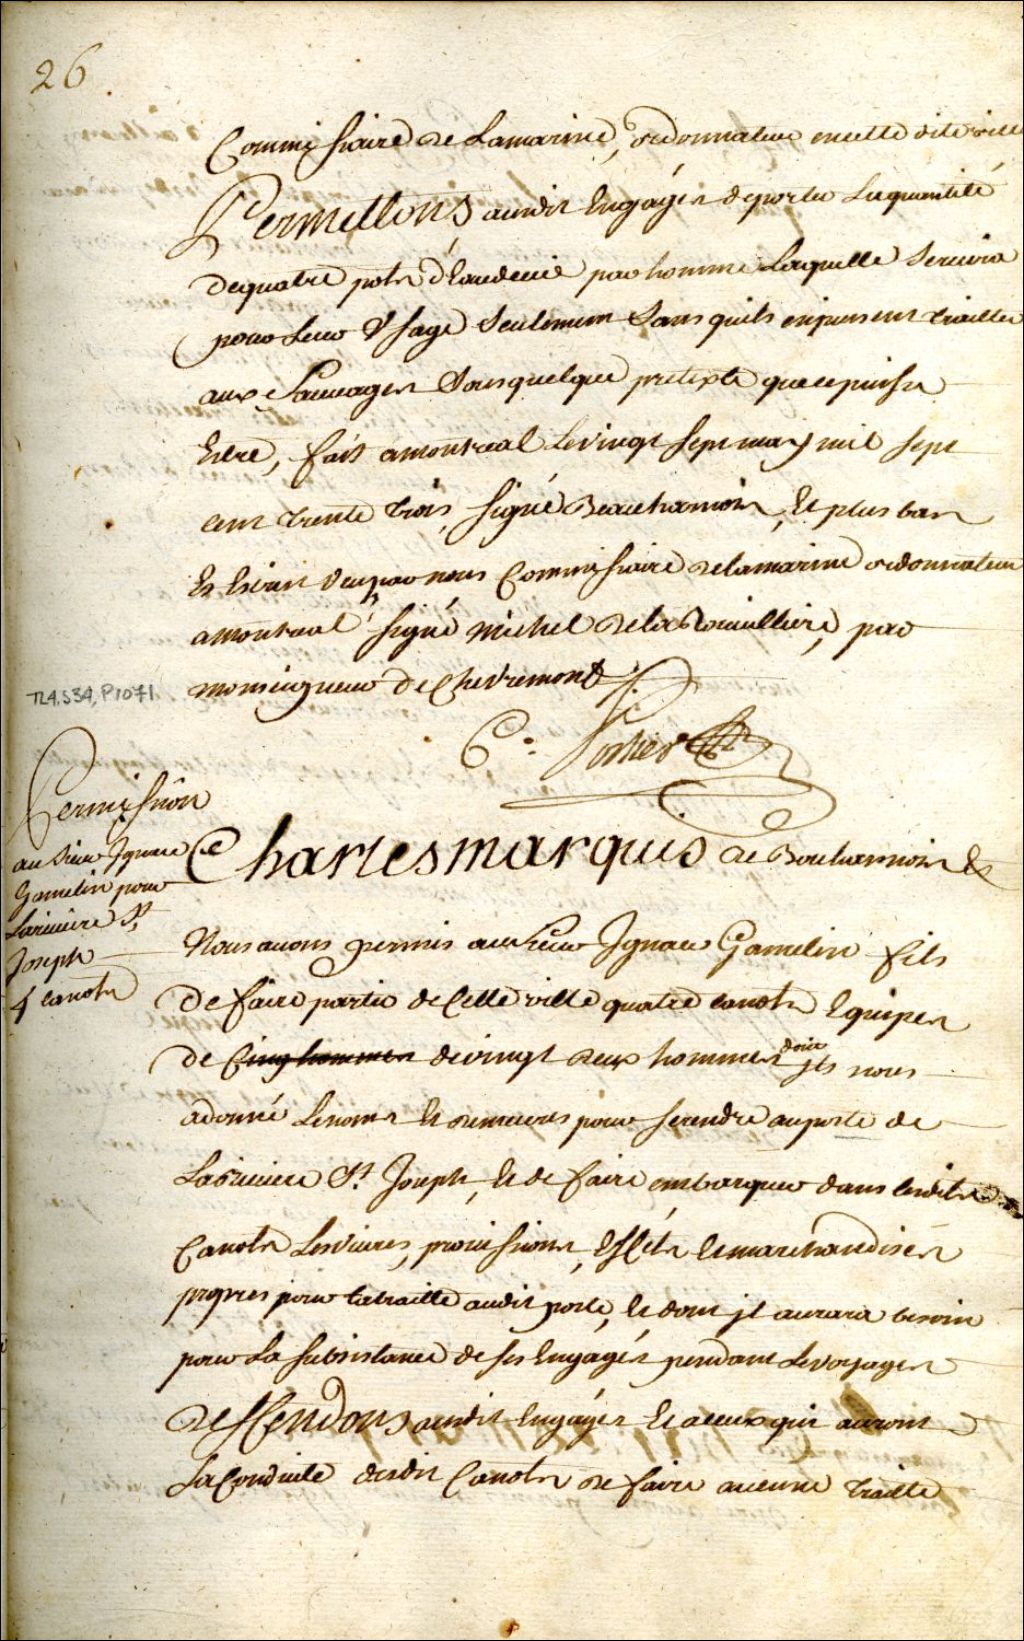 26
Commissaire de Lamarine, ordonnateur encette dite ville
Permettons ausdit Engagés deporter Laquantité
dequatre pots d'Eaudevie par homme Laquelle Servira
pour Leur Usage Seulement Sans quils enpuissent traitter
aux Sauvages Sousquelque pretexte quecepuisse
Estre, fait amontreal Levingt Sept may mil Sept
cent trente trois, Signé Beauharnois, Et plus bas
Et Escrit veu par nous Commissaire delamarine ordonnateur
amontreal Signé Michel de la Rouvilliere, par
monseigneur De Chevremont
C. Porlier
TL4,S34,P1071
Permission
au Sieur Ignace
Gamelin pour
Lariviere St
Joseph
4 canots
Charles marquis de Beauharnois &
Nous avons permis au Sieur Ignace Gamelin fils
De faire partir de Cette ville quatre canots Equipés
de Cinq hommes devingt deux hommes dont jls nous
adonné Lenoms Et demeures pour Serendre auposte de
Lariviere St Joseph, Et de faire embarquer dans lesdits
Canots Lesvivres, provissions, Effets Et marchandises
propres pour latraitte audit poste, Et dont jl aurara besoin
pour La Subsistance de ses Engagés pendant Levoyages
deffendons ausdit Engagés Et aceux qui auront
La Conduite desdit Canots de faire aucune traitte